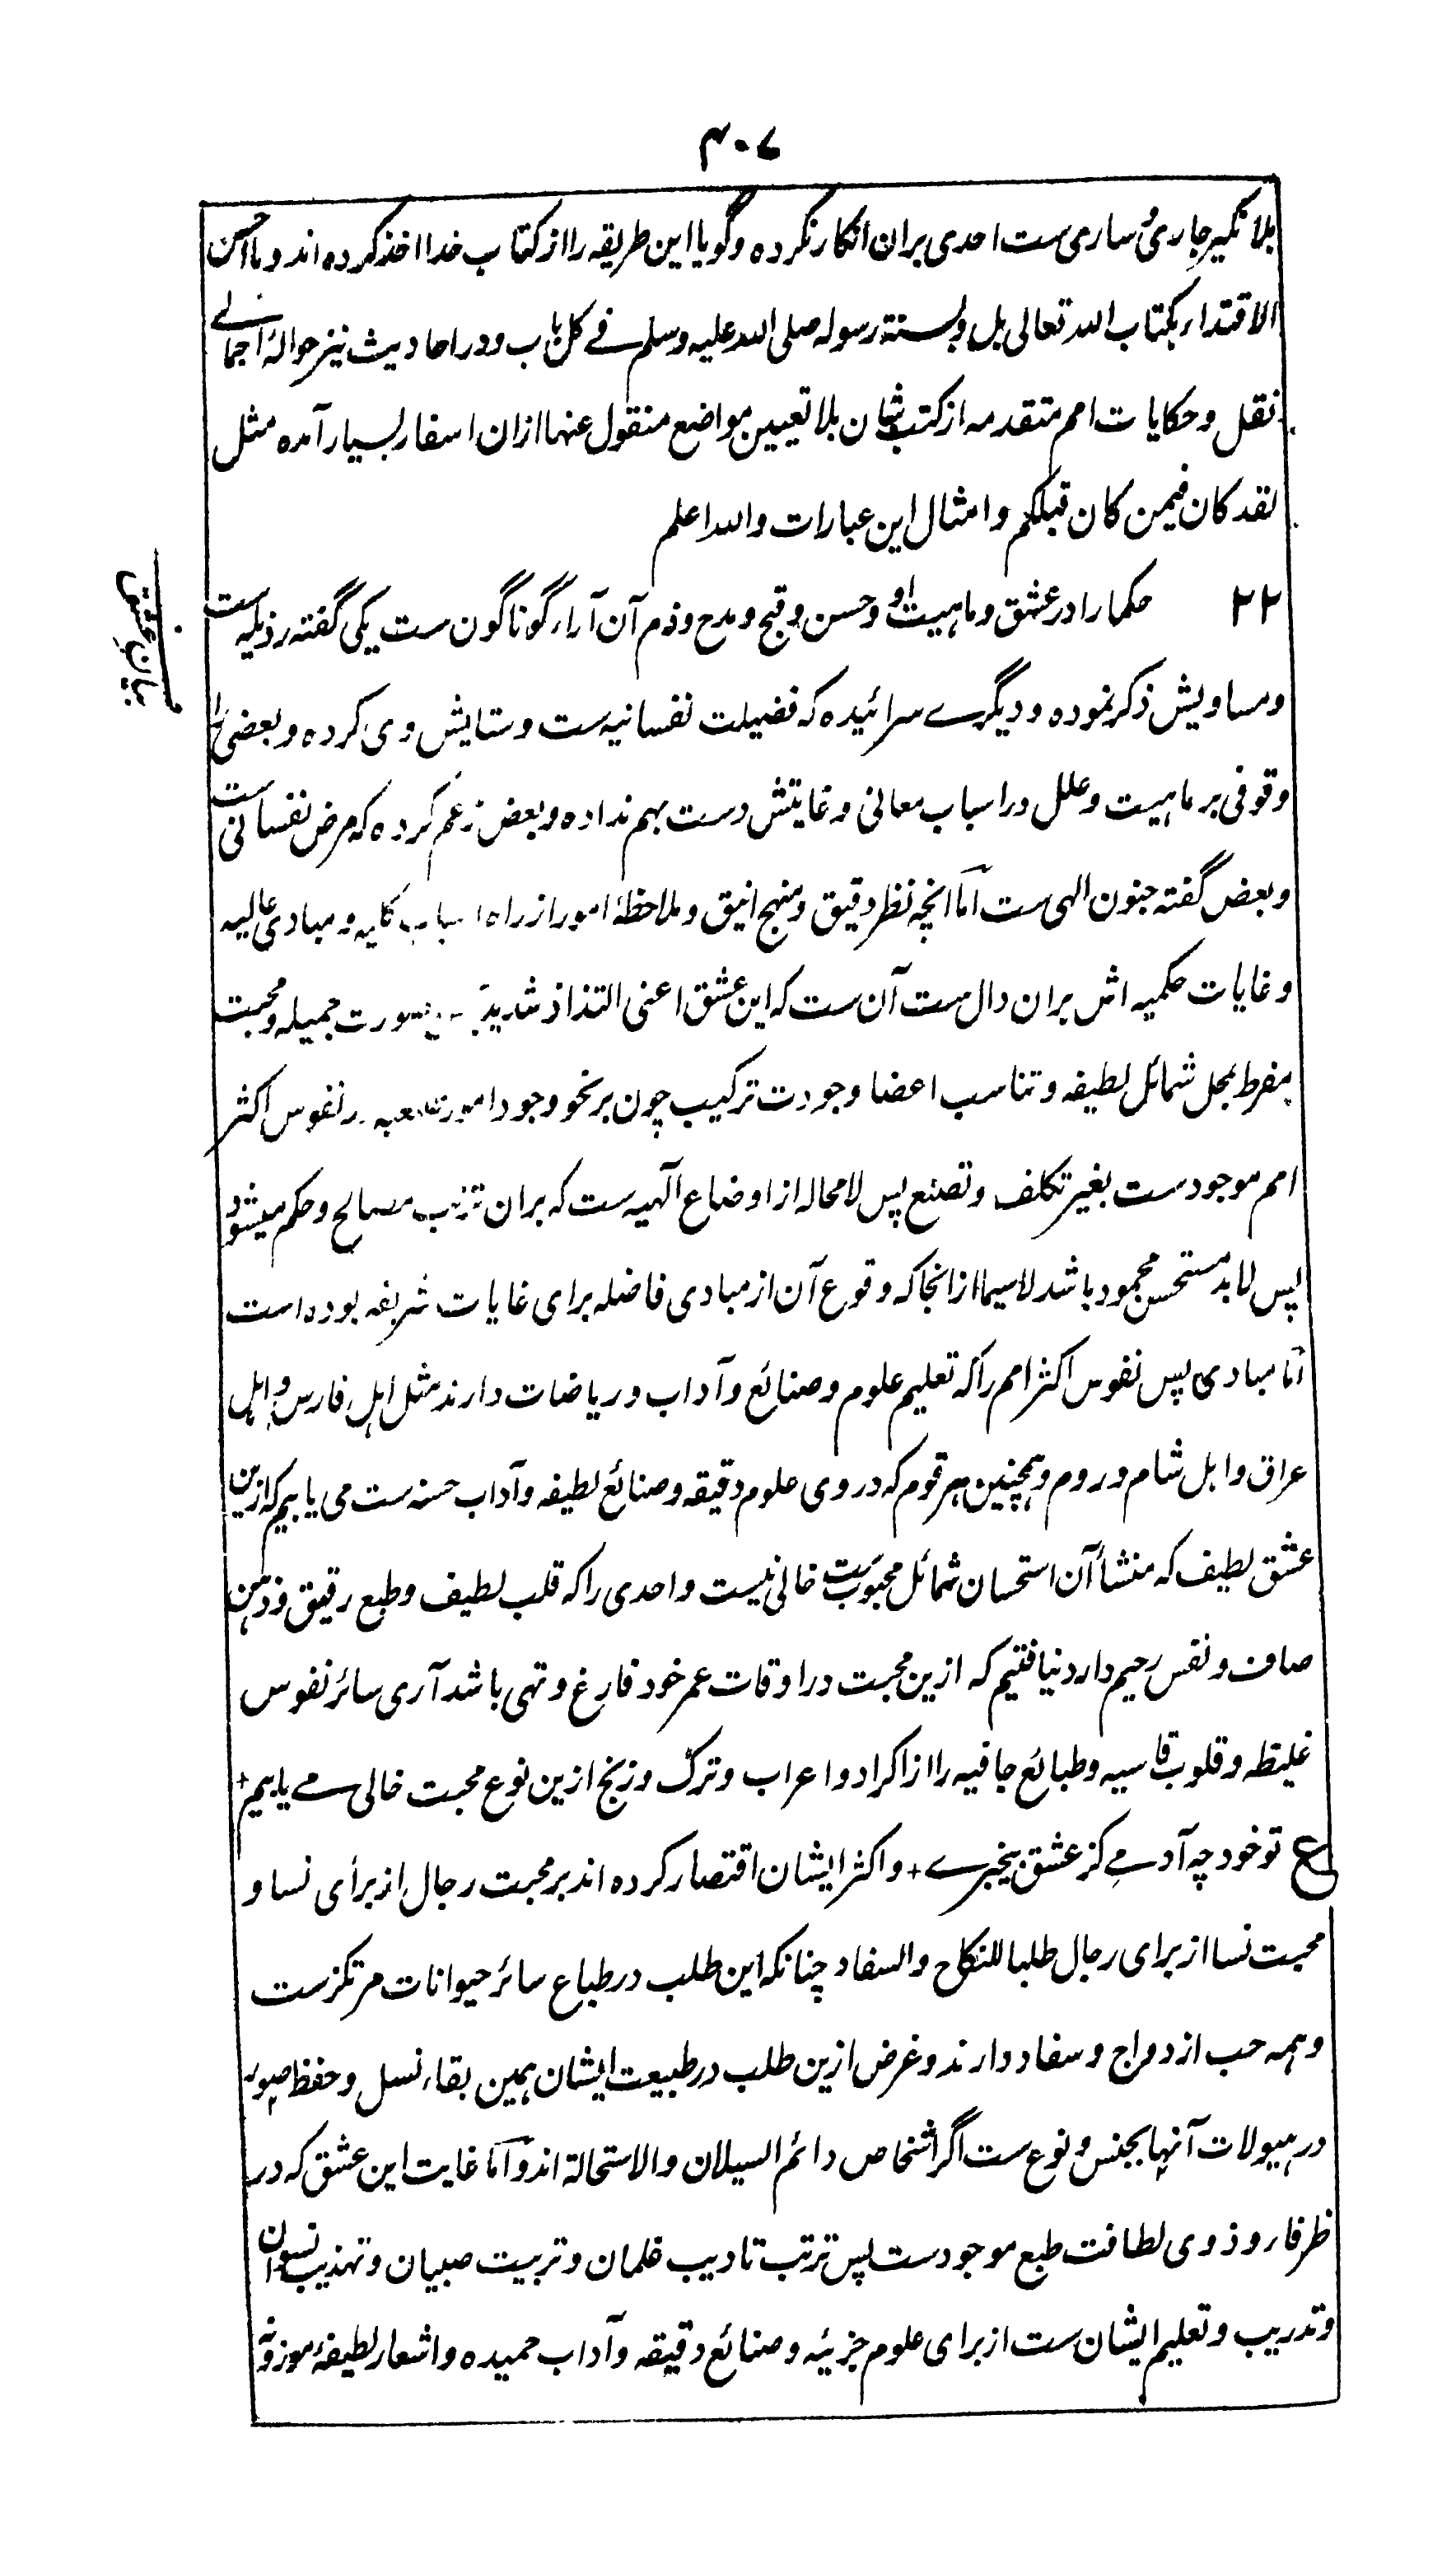 ۴۰۷
بلا نکیر جاری و ساری ست احدی بران انکار نکرده و گویا این طریقه را از کتاب خدا اخذ کرده اند و ما احسن
الاقتداء بکتاب الله تعالی بل و بسنة رسوله صلی الله علیه وسلم فے کل باب و در احادیث نیز حوالهٔ اجمالے
نقل و حکایات امم متقدمه از کتب شان بلا تعیین مواضع منقول عنها ازان اسفار بسیار آمده مثل
لقد کان فیمن کان قبلکم و امثال این عبارات والله اعلم
بیان عشق
۲۲ حکما را در عشق و ماهیت او و حسن و قبح و مدح و ذم آن آراء گوناگون ست یکی گفته رذیله ست
و مساویش ذکر نموده و دیگرے سرائیده که فضیلت نفسانیه ست و ستایش وی کرده و بعضی را
وقوفی بر ماهیت و علل و اسباب معانی و غایتش دست بهم نداده و بعض زعم کرده که مرض نفسانی ست
و بعض گفته جنون الهی ست اما آنچه نظر دقیق و منهج انیق و ملاحظهٔ امور از راه اسباب کلیه و مبادی عالیه
و غایات حکمیه اش بران دال ست آن ست که این عشق اعنی التذاذ شدید صورت جمیله و محبت
مفرط بمحل شمائل لطیفه و تناسب اعضا و جودت ترکیب چون بر نحو وجود امور نفوس اکثر
امم موجودست بغیر تکلف و تصنع پس لا محاله از اوضاع آلهیه ست که بران ترتب مصالح و حکم میشود
پس لابد مستحسن محمود باشد لاسیما از انجا که وقوع آن از مبادی فاضله برای غایات شریفه بوده است
اما مبادی پس نفوس اکثر امم را که تعلیم علوم و صنائع و آداب و ریاضات دارند مثل اهل فارس و اهل
عراق و اهل شام و روم و همچنین هر قوم که در وی علوم دقیقه و صنائع لطیفه و آداب حسنه ست می یابیم که ازین
عشق لطیف که منشأ آن استحسان شمائل محبوب ست خالی نیست و احدی را که قلب لطیف و طبع رقیق و ذهن
صاف و نفس رحیم دارد نیافتیم که ازین محبت در اوقات عمر خود فارغ و تهی باشد آری سائر نفوس
غلیظه و قلوب قاسیه و طبائع جافیه را از اکراد و اعراب و ترک و زنج ازین نوع محبت خالی مے یابیم +
ع تو خود چه آدمے کز عشق بیخبرے + و اکثر ایشان اقتصار کرده اند بر محبت رجال از برای نسا و
محبت نسا از برای رجال طلبا للنکاح والسفاد چنانکه این طلب در طباع سائر حیوانات مرتکزست
و همه حب ازدواج و سفاد دارند و غرض ازین طلب در طبیعت ایشان همین بقاء نسل و حفظ صور
در هیولات آنها بجنس و نوع ست اگر اشخاص دائم السیلان والاستحالة اند و اما غایت این عشق که در
ظرفاء و ذوی لطافت طبع موجودست پس ترتب تادیب غلمان و تربیت صبیان و تهذیب نسوان
و تدریب و تعلیم ایشان ست از برای علوم جزئیه و صنائع دقیقه و آداب حمیده و اشعار لطیفهٔ موزونه